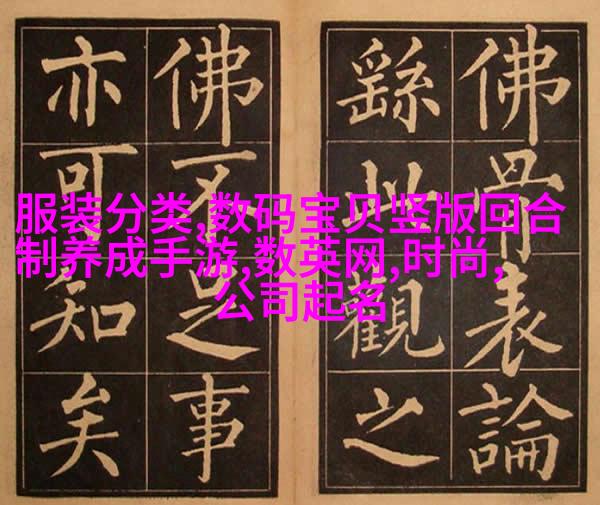 服装分类,数码宝贝竖版回合
制养成手游,数英网,时尚,
公司起名
佛骨表論
繇此觀之
佛不足事
亦可知矣